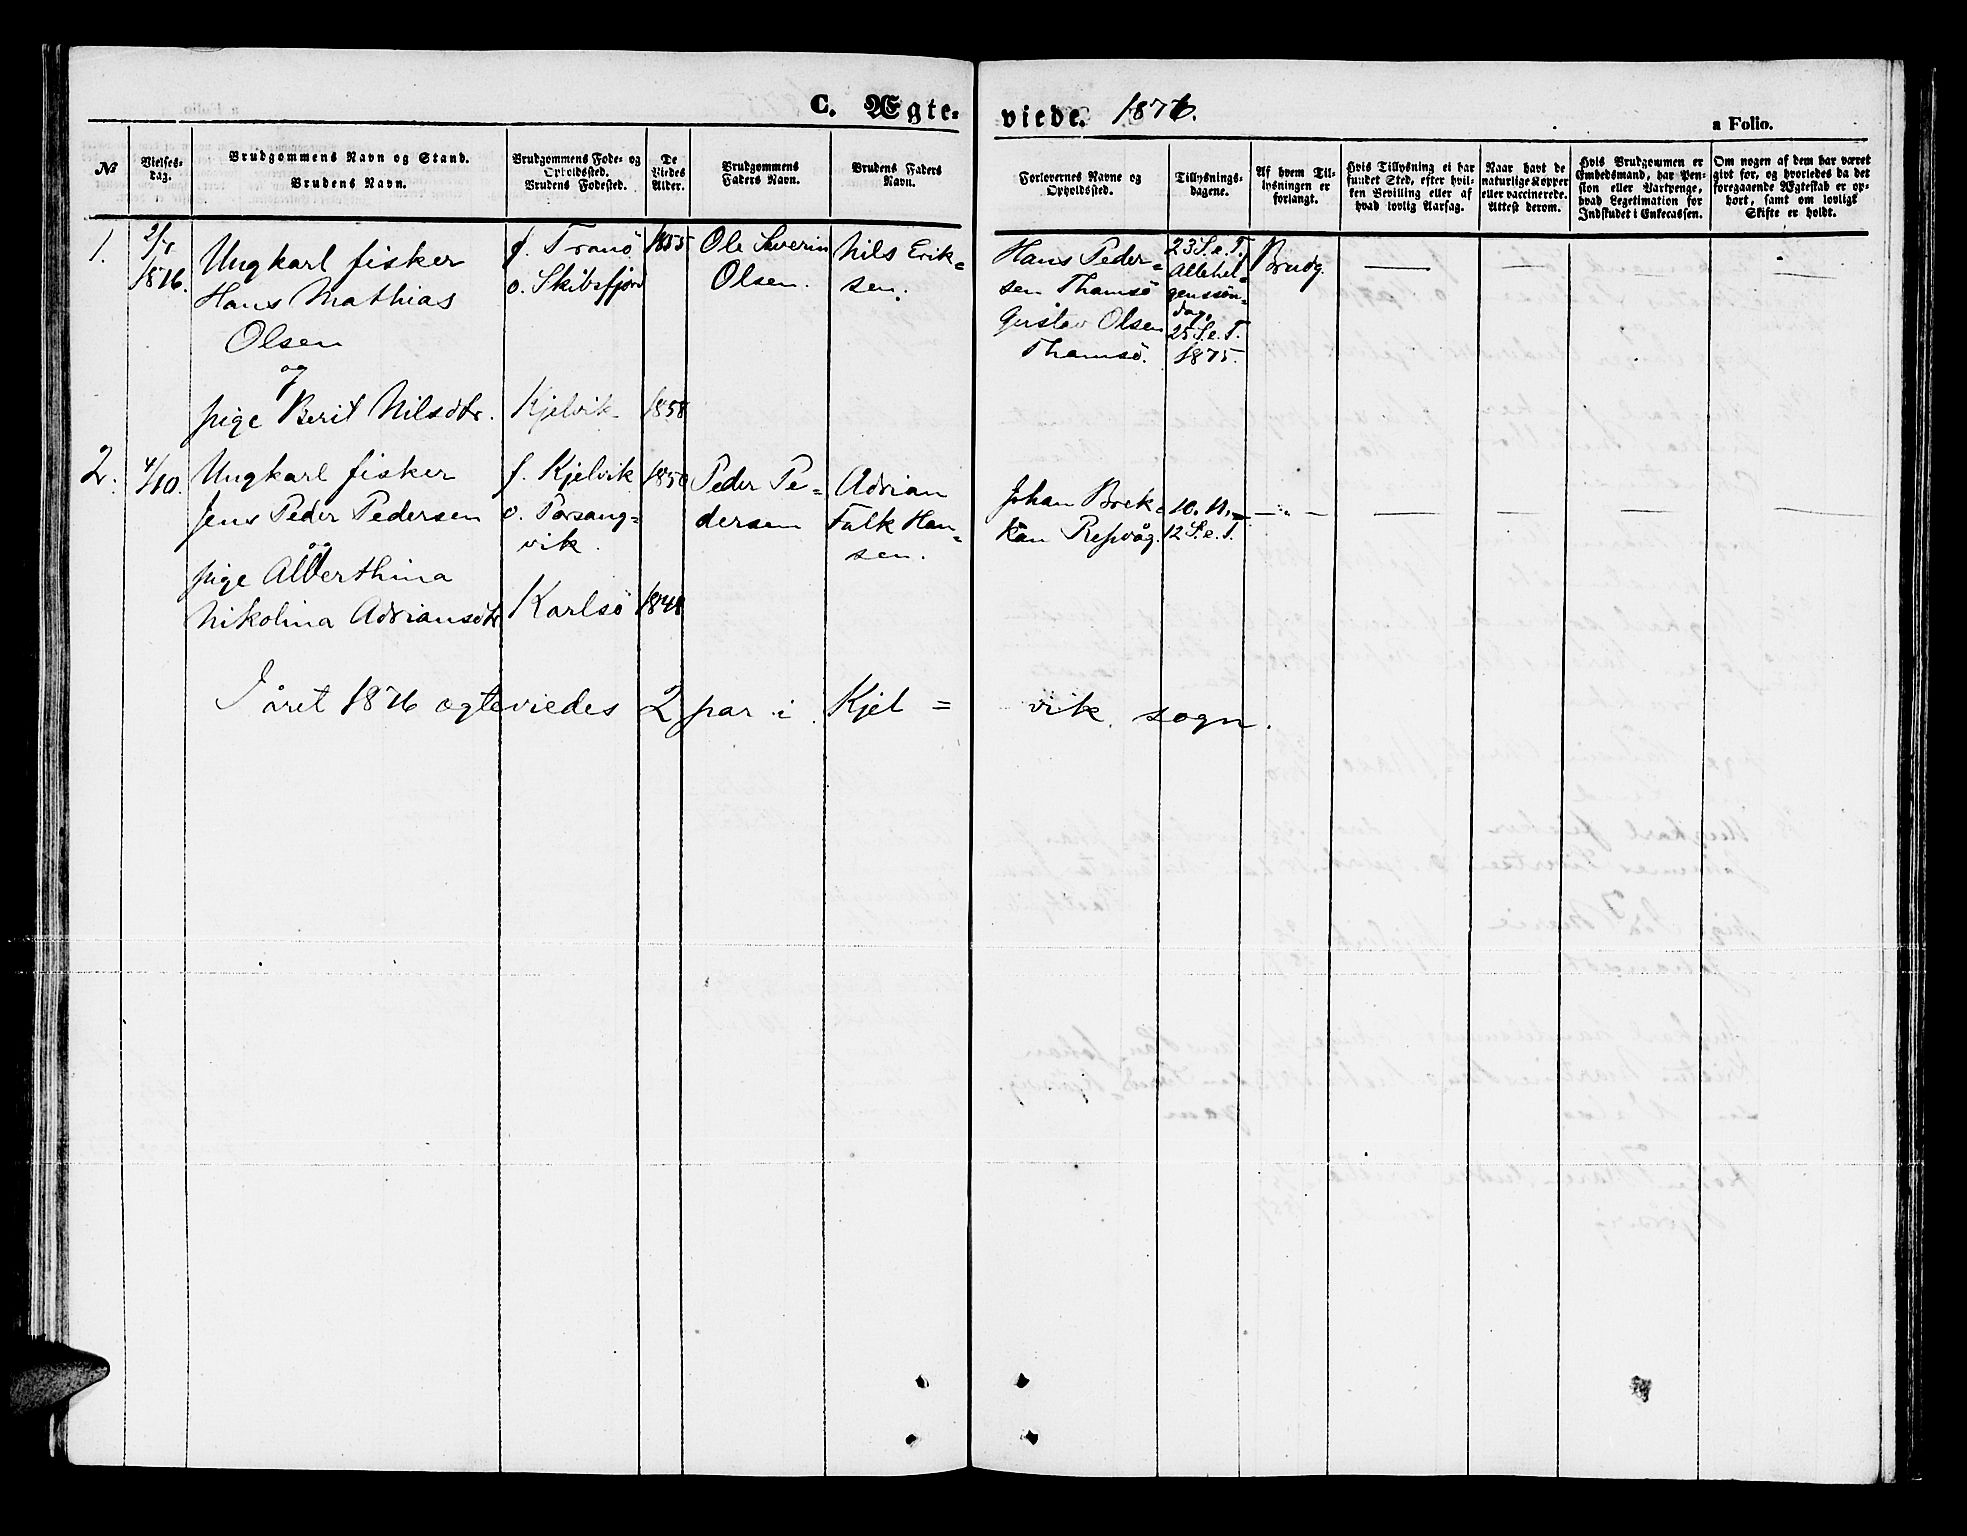 C. Ægte-
viede. 1876.
a Folio.
№
Vielses-
dag.
Brudgommens Navn og Stand.
Brudens Navn.
Brudgommens Føde- og
Opholdssted.
Brudens Fødested.
De
Viedes
Alder.
Brudgommens
Faders Navn.
Brudens Faders
Navn.
Forlovernes Navne og
Opholdssted.
Tillysnings-
dagene.
Af hvem Til-
lysningen er
forlangt.
Hvis Tillysning ei har
fundet Sted, efter hvil-
ken Bevilling eller af
hvad lovlig Aarsag.
Naar havt de
naturlige Kopper
eller vaccinerede.
Attest derom.
Hvis Brudgommen er
Embedsmand, har Pen-
sion eller Vartpenge,
hvad Legetimation for
Indskudet i Enkecassen.
Om nogen af dem har været
givt før, og hvorledes da det
foregaaende Ægteskab er op-
hørt, samt om lovligt
Skifte er holdt.
1.
2/1
1876.
Ungkarl fisker
Hans Mathias
Olsen
og
pige Berit Nilsdtr.
f. Tranö
o. Skibsfjord
Kjelvik
1855
1858
Ole Severin
Olsen.
Nils Erik=
sen.
Hans Peder=
sen Thamsö
Gustav Olsen
Thamsö.
23 S. e. T.
Allehel=
genssön=
dag,
25 S. e. T.
1875.
Brudg.
2.
4/10.
Ungkarl fisker
Jens Peder Pedersen
og
pige Alberthina
Nikolina Adriansdtr
f. Kjelvik
o. Porsang=
vik.
Karlsö
1850
1848
Peder Pe=
dersen
Adrian
Falk Han=
sen.
Johan Brek=
kan Repvåg.
10. 11. –
12 S. e. T.
–:„ –
I året 1876 ægteviedes 2 par i Kjel =
vik sogn.